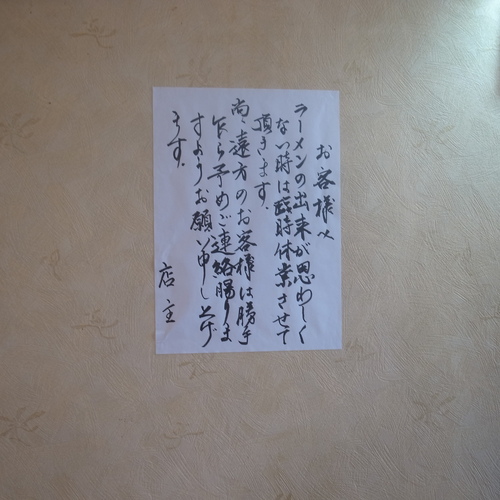 お客様へ
ラーメンの出来が思わしく
ない時は臨時休業させて
頂きます。
尚、遠方のお客様は勝手
乍ら予めご連絡賜りま
すようお願い申し上げ
ます。
店主